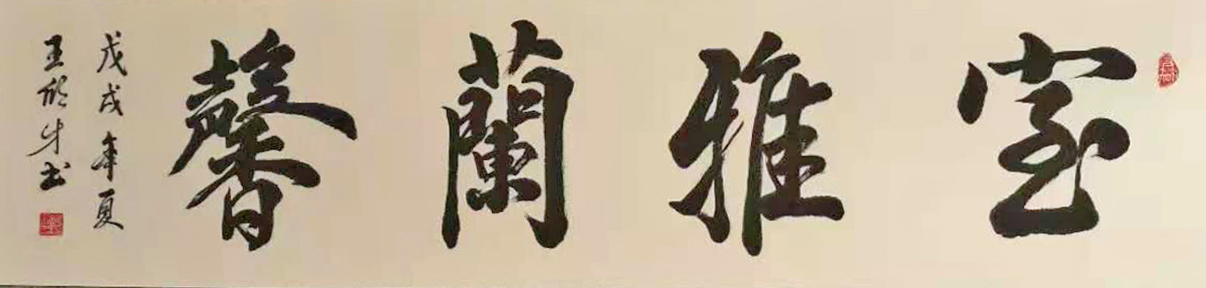 室雅蘭馨
戊戌年夏
王
书